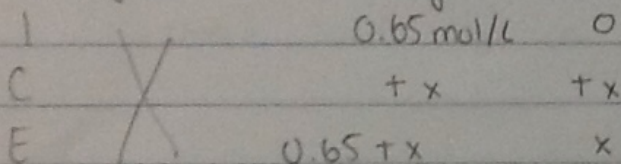 I 0.65 mol/L 0
C + x + x
E 0.65 + x x